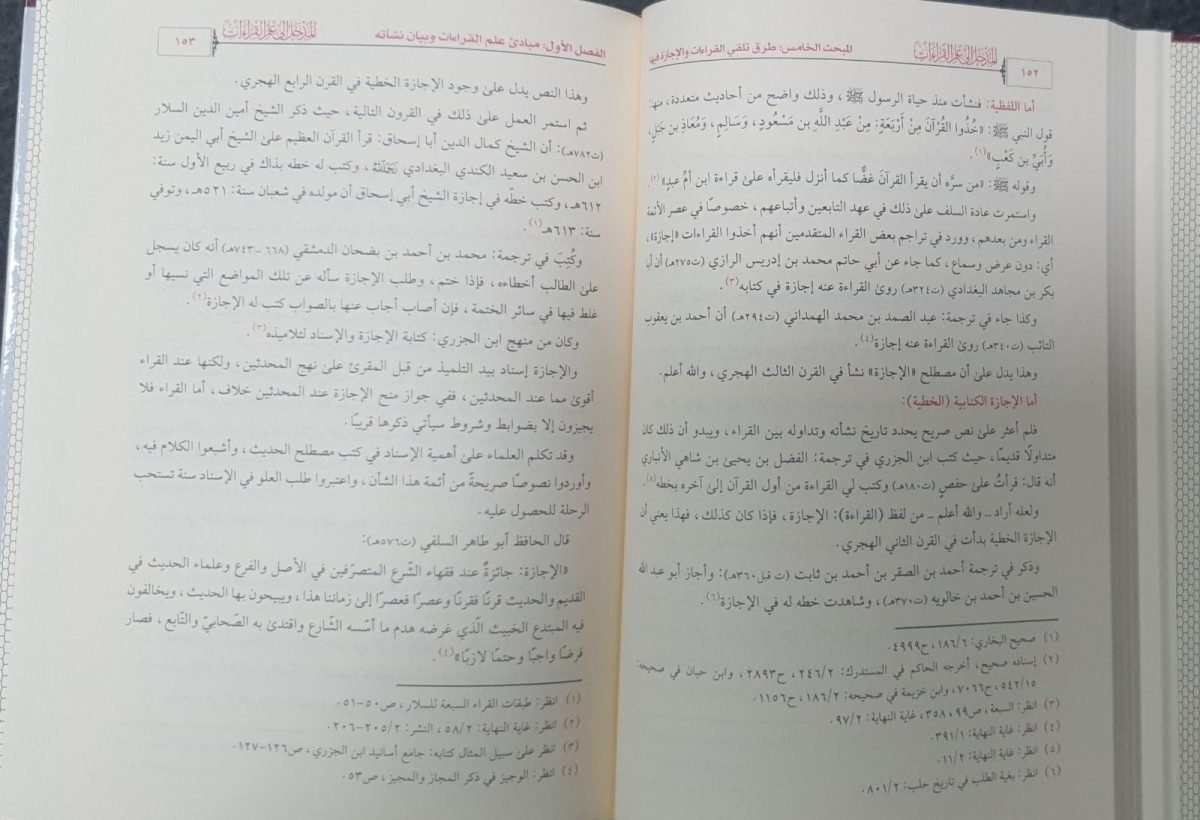 ١٥٢
المبحث الخامس: طرق تلقي القراءات والإجازة فيها
المدخل إلى علم القراءات
أما اللفظية: فنشأت منذ حياة الرسول ﷺ، وذلك واضح من أحاديث متعددة، منها:
قول النبي ﷺ: «خُذُوا القُرْآنَ مِنْ أَرْبَعَةٍ: مِنْ عَبْدِ اللَّهِ بن مَسْعُودٍ، وَسَالِمٍ، وَمُعَاذِ بن جَبَلٍ،
وَأُبَيِّ بن كَعْبٍ»(١).
وقوله ﷺ: «من سرَّه أن يقرأ القرآنَ غضًّا كما أنزل فليقرأه علىٰ قراءة ابن أمِّ عبدٍ»(٢).
واستمرت عادة السلف علىٰ ذلك في عهد التابعين وأتباعهم، خصوصًا في عصر الأئمة
القراء ومن بعدهم، وورد في تراجم بعض القراء المتقدمين أنهم أخذوا القراءات «إجازة»،
أي: دون عرض وسماع، كما جاء عن أبي حاتم محمد بن إدريس الرازي (ت٢٧٥هـ) أن أبا
بكر بن مجاهد البغدادي (ت٣٢٤هـ) روىٰ القراءة عنه إجازة في كتابه(٣).
وكذا جاء في ترجمة: عبد الصمد بن محمد الهمداني (ت٢٩٤هـ) أن أحمد بن يعقوب
التائب (ت٣٤٠هـ) روىٰ القراءة عنه إجازة(٤).
وهذا يدل علىٰ أن مصطلح «الإجازة» نشأ في القرن الثالث الهجري، والله أعلم.
أما الإجازة الكتابية (الخطية):
فلم أعثر علىٰ نص صريح يحدد تاريخ نشأته وتداوله بين القراء، ويبدو أن ذلك كان
متداولًا قديمًا، حيث كتب ابن الجزري في ترجمة: الفضل بن يحيىٰ بن شاهي الأنباري
أنه قال: قرأتُ علىٰ حفصٍ (ت١٨٠هـ) وكتب لي القراءة من أول القرآن إلىٰ آخره بخطه(٥).
ولعله أراد ــ والله أعلم ــ من لفظ (القراءة): الإجازة، فإذا كان كذلك، فهذا يعني أن
الإجازة الخطية بدأت في القرن الثاني الهجري.
وذكر في ترجمة أحمد بن الصقر بن أحمد بن ثابت (ت قبل ٣٦٠هـ): وأجاز أبو عبد الله
الحسين بن أحمد بن خالويه (ت٣٧٠هـ)، وشاهدت خطه له في الإجازة(٦).
(١) صحيح البخاري: ١٨٦/٦، ح٤٩٩٩.
(٢) إسناده صحيح، أخرجه الحاكم في المستدرك: ٢٤٦/٢، ح٢٨٩٣، وابن حبان في صحيحه:
٥٤٢/١٥، ح٧٠٦٦، وابن خزيمة في صحيحه: ١٨٦/٢، ح١١٥٦.
(٣) انظر: السبعة، ص٩٩، ٣٥٨، غاية النهاية: ٩٧/٢.
(٤) انظر: غاية النهاية: ٣٩١/١.
(٥) انظر: غاية النهاية: ١١/٢.
(٦) انظر: بغية الطلب في تاريخ حلب: ٨٠١/٢.
الفصل الأول: مبادئ علم القراءات وبيان نشأته
المدخل إلى علم القراءات
١٥٣
وهذا النص يدل علىٰ وجود الإجازة الخطية في القرن الرابع الهجري.
ثم استمر العمل علىٰ ذلك في القرون التالية، حيث ذكر الشيخ أمين الدين السلار
(ت٧٨٢هـ): أن الشيخ كمال الدين أبا إسحاق: قرأ القرآن العظيم علىٰ الشيخ أبي اليمن زيد
ابن الحسن بن سعيد الكندي البغدادي رَحِمَهُ اللَّهُ، وكتب له خطه بذاك في ربيع الأول سنة:
٦١٢هـ، وكتب خطّه في إجازة الشيخ أبي إسحاق أن مولده في شعبان سنة: ٥٢١هـ، وتوفي
سنة: ٦١٣هـ(١).
وكُتِبَ في ترجمة: محمد بن أحمد بن بضحان الدمشقي (٦٦٨ـ٧٤٣هـ) أنه كان يسجل
علىٰ الطالب أخطاءه، فإذا ختم، وطلب الإجازة سأله عن تلك المواضع التي نسيها أو
غلط فيها في سائر الختمة، فإن أصاب أجاب عنها بالصواب كتب له الإجازة(٢).
وكان من منهج ابن الجزري: كتابة الإجازة والإسناد لتلاميذه(٣).
والإجازة إسناد بيد التلميذ من قبل المقرئ علىٰ نهج المحدثين، ولكنها عند القراء
أقوىٰ مما عند المحدثين، ففي جواز منح الإجازة عند المحدثين خلاف، أما القراء فلا
يجيزون إلا بضوابط وشروط سيأتي ذكرها قريبًا.
وقد تكلم العلماء علىٰ أهمية الإسناد في كتب مصطلح الحديث، وأشبعوا الكلام فيه،
وأوردوا نصوصًا صريحةً من أئمة هذا الشأن، واعتبروا طلب العلو في الإسناد سنة تستحب
الرحلة للحصول عليه.
قال الحافظ أبو طاهر السلفي (ت٥٧٦هـ):
«الإجازة: جائزةٌ عند فقهاء الشّرع المتصرّفين في الأصل والفرع وعلماء الحديث في
القديم والحديث قرنًا فقرنًا وعصرًا فعصرًا إلىٰ زماننا هذا، ويبيحون بها الحديث، ويخالفون
فيه المبتدع الخبيث الّذي غرضه هدم ما أسّسه الشّارع واقتدىٰ به الصّحابيّ والتّابع، فصار
فرضًا واجبًا وحتمًا لازبًا»(٤).
(١) انظر: طبقات القراء السبعة للسلار، ص٥٠-٥١.
(٢) انظر: غاية النهاية: ٥٨/٢، النشر: ٢٠٥/٢-٢٠٦.
(٣) انظر علىٰ سبيل المثال كتابه: جامع أسانيد ابن الجزري، ص١٢٦-١٢٧.
(٤) انظر: الوجيز في ذكر المجاز والمجيز، ص٥٣.